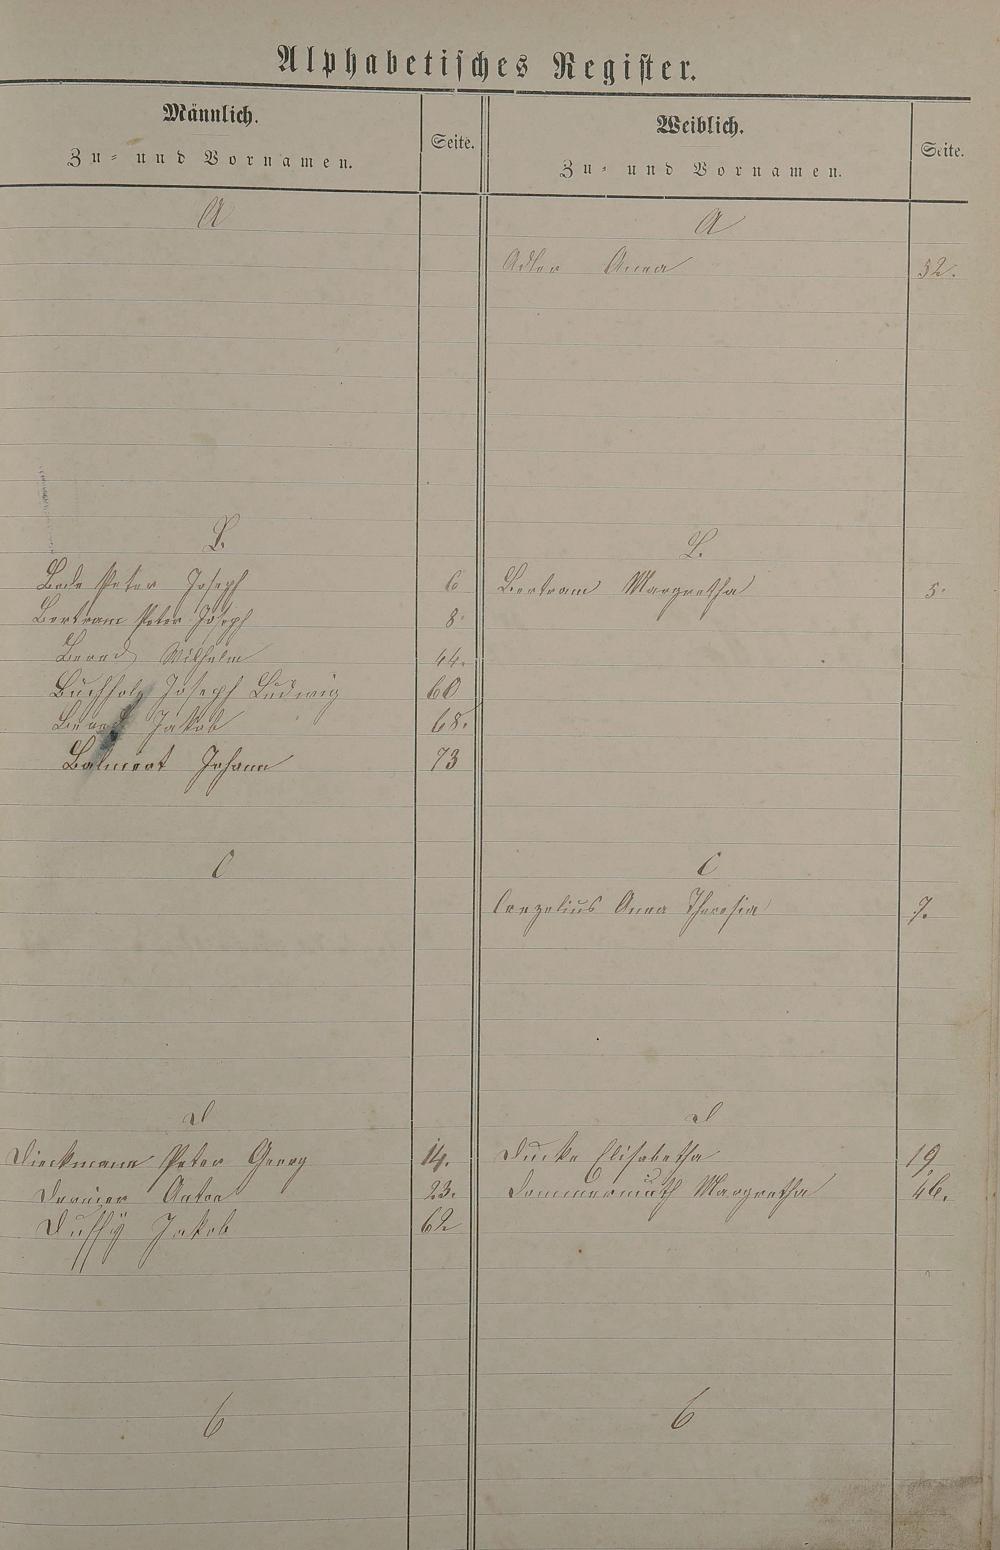 Alphabetisches Register.
Männlich.
Zu- und Vornamen.
Seite.
Weiblich.
Zu- und Vornamen.
Seite.
A
A
Adler Anna 52.
B.
B.
Peter Joseph 6
Bertram Margretha 5.
Bertram Peter Joseph 8.
Wilhelm 44.
Buchholz Joseph Ludwig 60
Jakob 68.
Johann 73
C
C
Anna Theresia 7.
D
D
Dieckmann Peter Georg 14.
Ducke Elisabetha 19
Anton 23.
Dommermuth Margretha 46.
Duffÿ Jakob 62
E
E